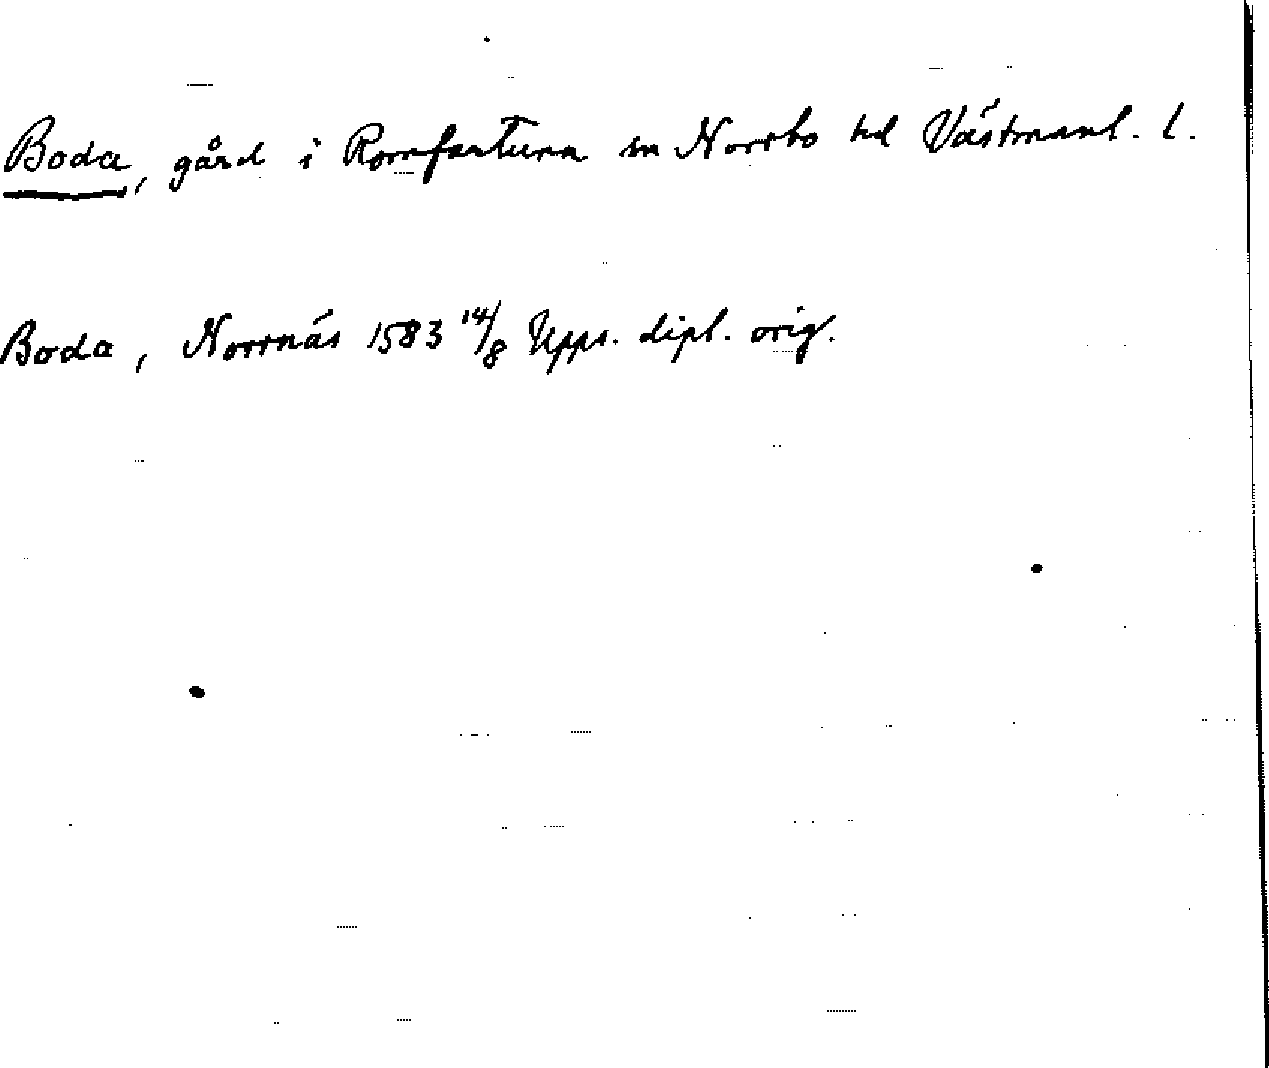 Boda, gård i Romfartuna sn Norrbo hd Västmanl. l.
Boda, Norrnäs 1583 14/8 Upps. dipl. orig.